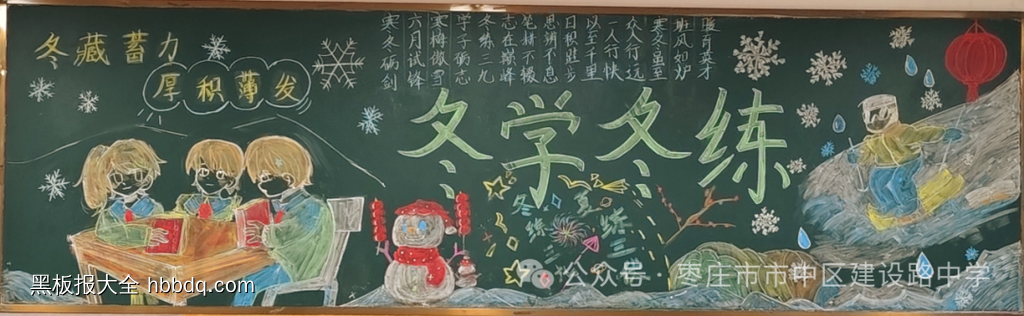 冬藏蓄力
厚积薄发
寒冬砺剑
六月试锋
寒梅傲雪
学子砺志
冬练三九
志在巅峰
笔耕不辍
思绪不息
日积跬步
以至千里
一人行快
众人行远
寒冬虽至
班风如炉
暖育英才
冬学冬练
冬练三
夏练三
公众号·枣庄市市中区建设路中学
黑板报大全 hbbdq.com